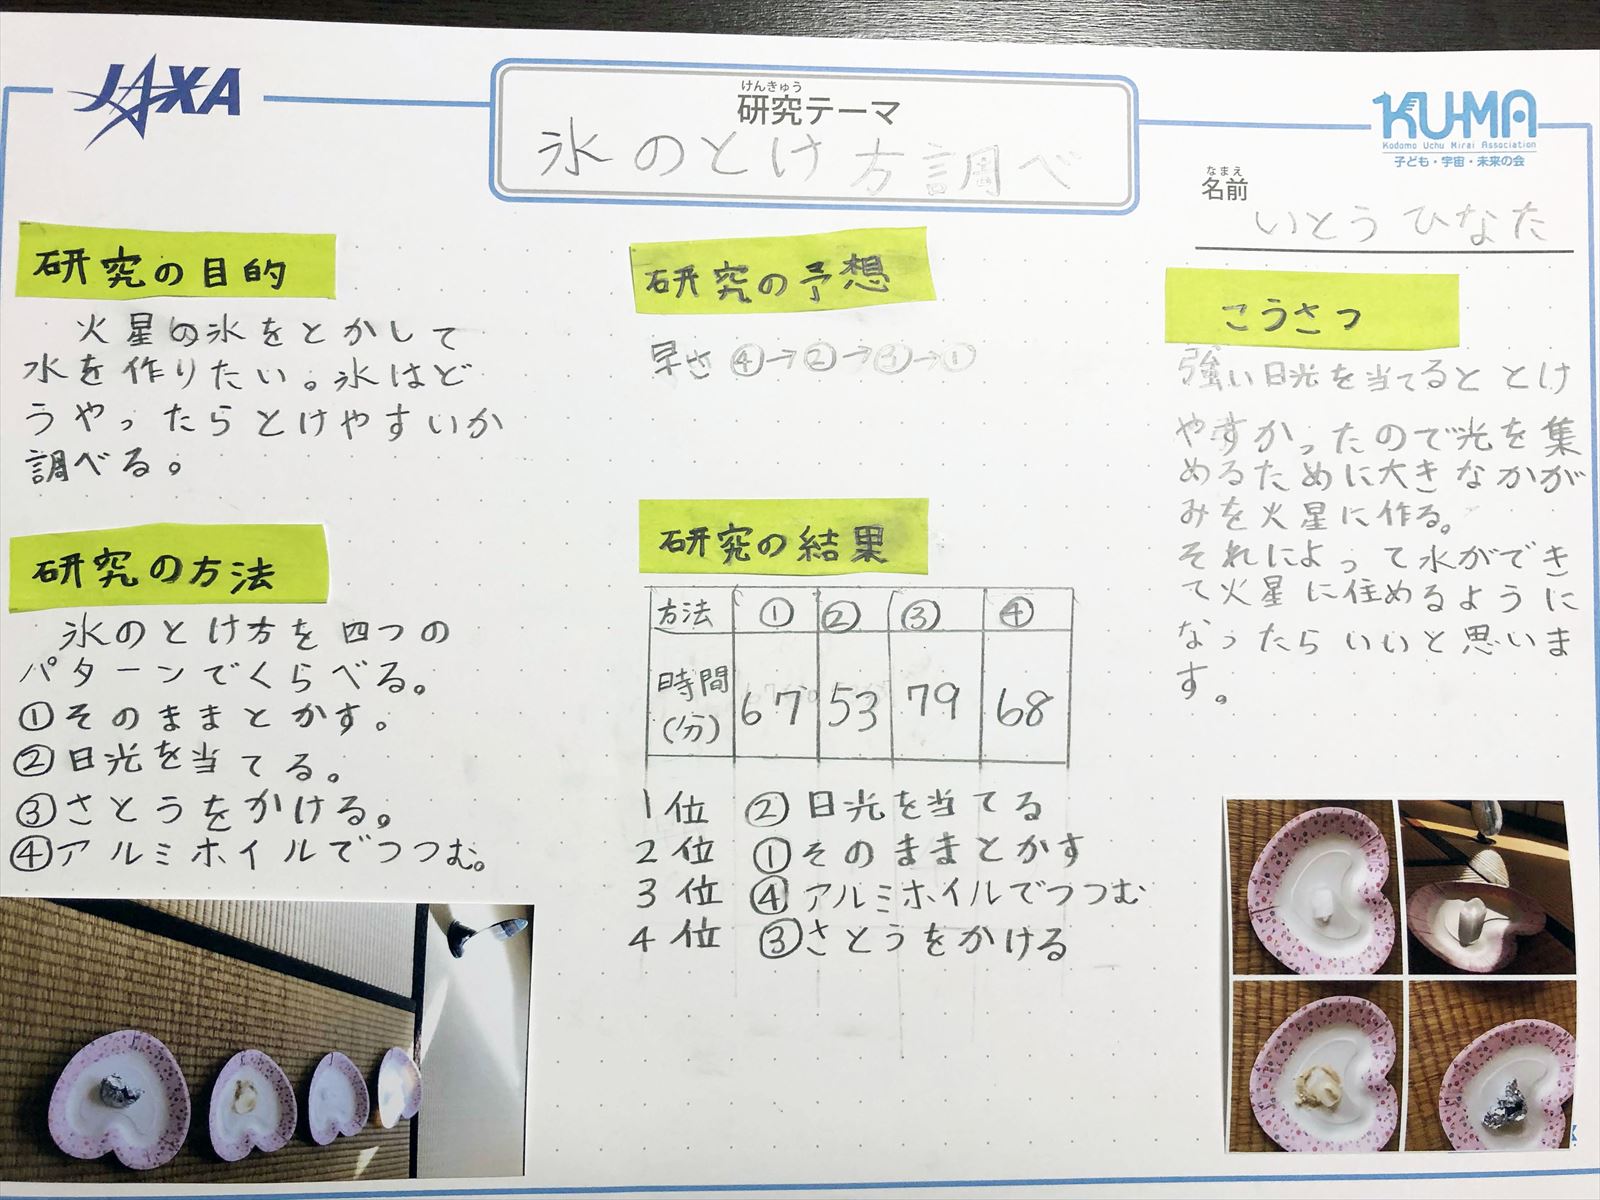 JAXA
けんきゅう
研究テーマ
氷のとけ方調べ
KU-MA
Kodomo Uchu Mirai Association
子ども・宇宙・未来の会
なまえ
名前
いとう ひなた
研究の目的
火星の氷をとかして
水を作りたい。氷はど
うやったらとけやすいか
調べる。
研究の方法
氷のとけ方を四つの
パターンでくらべる。
①そのままとかす。
②日光を当てる。
③さとうをかける。
④アルミホイルでつつむ。
研究の予想
早さ ④→②→③→①
研究の結果
方法 ① ② ③ ④
時間(分) 67 53 79 68
1位 ②日光を当てる
2位 ①そのままとかす
3位 ④アルミホイルでつつむ
4位 ③さとうをかける
こうさつ
強い日光を当てるととけ
やすかったので光を集
めるために大きなかが
みを火星に作る。
それによって水ができ
て火星に住めるように
なったらいいと思いま
す。